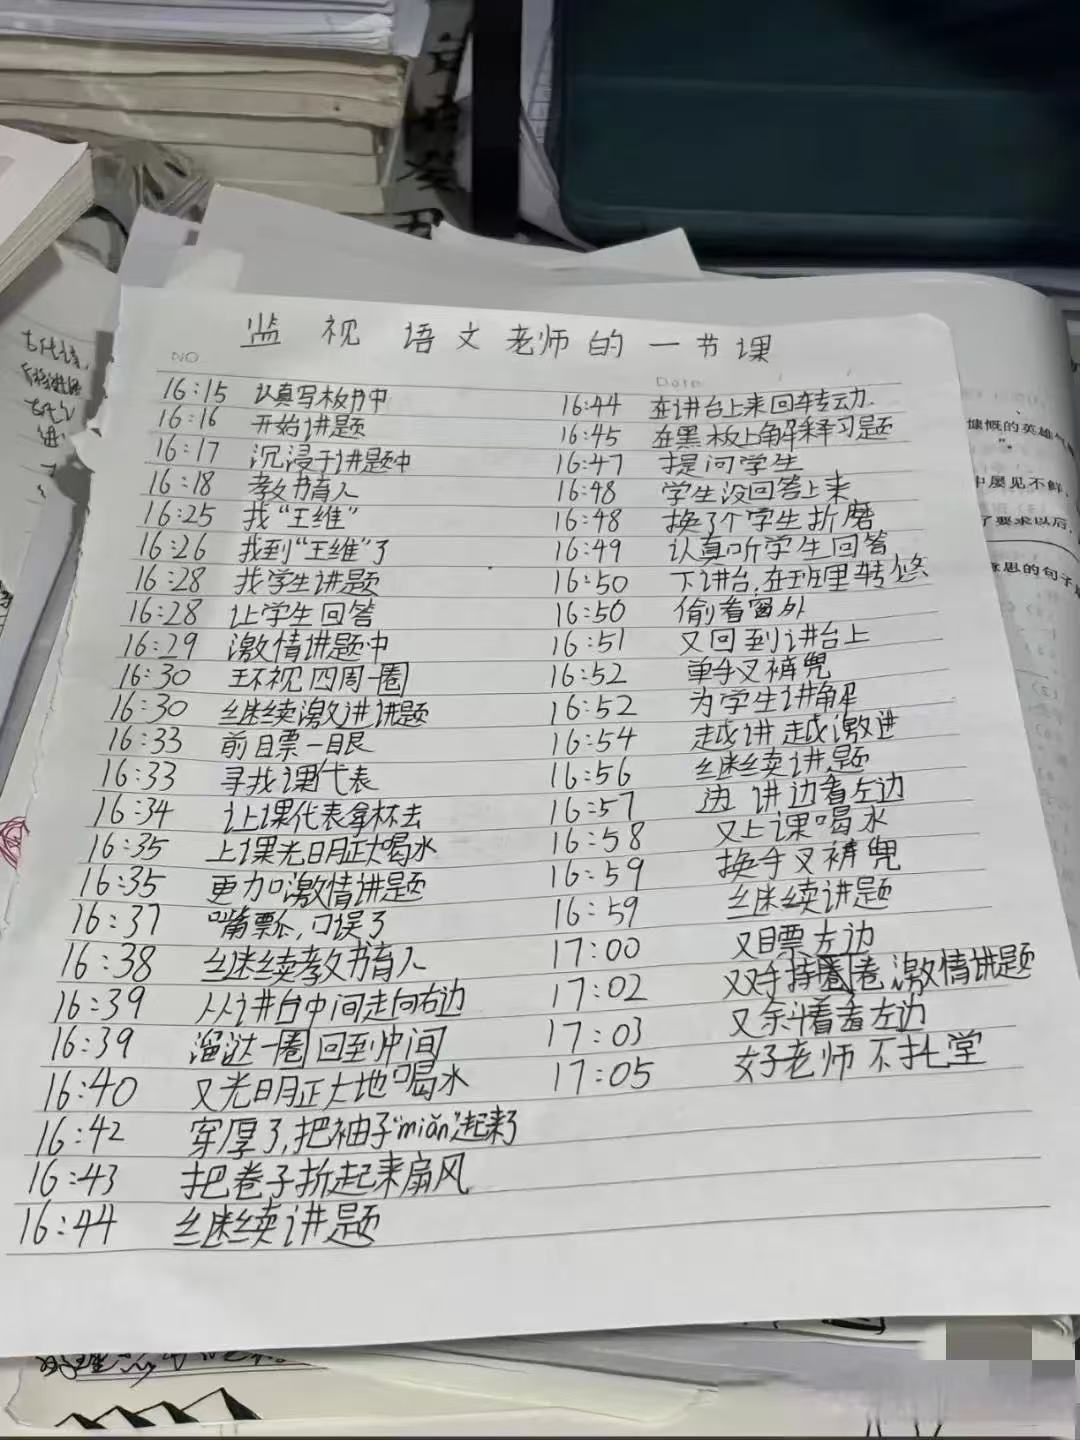 监视语文老师的一节课
NO.
Date
16:15 认真写板书中
16:16 开始讲题
16:17 沉浸于讲题中
16:18 教书育人
16:25 找“王维”
16:26 找到“王维”了
16:28 找学生讲题
16:28 让学生回答
16:29 激情讲题中
16:30 环视四周一圈
16:30 继续激进讲题
16:33 前瞟一眼
16:33 寻找课代表
16:34 让课代表拿杯去
16:35 上课光明正大喝水
16:35 更加激情讲题
16:37 嘴瓢,口误了
16:38 继续教书育人
16:39 从讲台中间走向右边
16:39 溜达一圈回到中间
16:40 又光明正大地喝水
16:42 穿厚了,把袖子“miǎn”起来了
16:43 把卷子折起来扇风
16:44 继续讲题
16:44 在讲台上来回转动.
16:45 在黑板上解释习题
16:47 提问学生
16:48 学生没回答上来
16:48 换了个学生折磨
16:49 认真听学生回答
16:50 下讲台,在班里转悠
16:50 偷看窗外
16:51 又回到讲台上
16:52 单手叉裤兜
16:52 为学生讲解
16:54 越讲越激进
16:56 继续讲题
16:57 边讲边看左边
16:58 又上课喝水
16:59 换手叉裤兜
16:59 继续讲题
17:00 又瞟左边
17:02 双手持圈卷激情讲题
17:03 又斜着看左边
17:05 好老师不拖堂
慷慨的英雄气
中屡见不鲜,
了要求以后,
思的句子